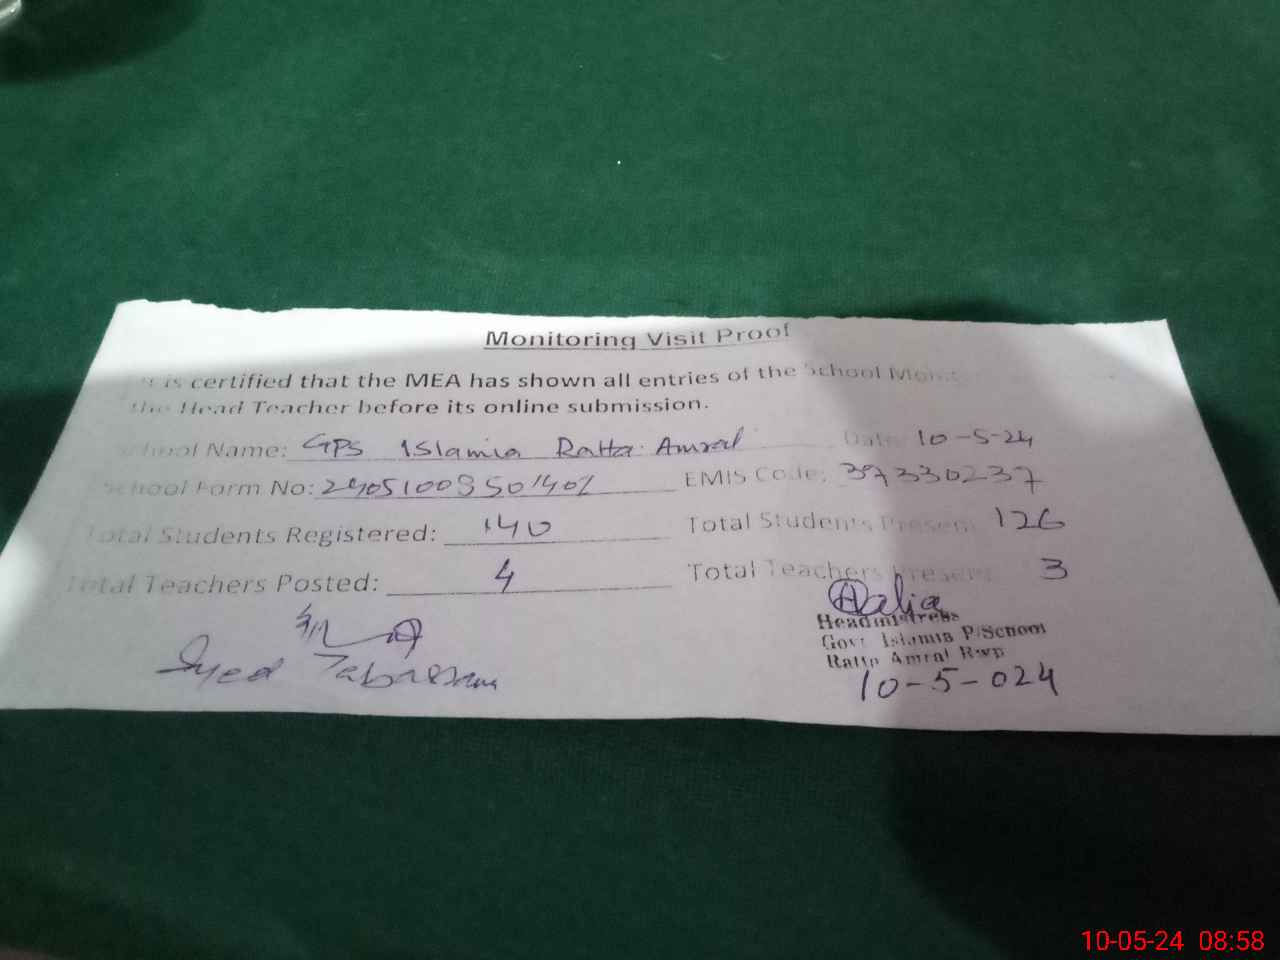 Monitoring Visit Proof
It is certified that the MEA has shown all entries of the School
the Head Teacher before its online submission.
School Name: GPS Islamia Ratta Amral Date: 10-5-24
School Form No: EMIS Code: 37330237
Total Students Registered: 140 Total Students Present 126
Total Teachers Posted: 4 Total Teachers Present 3
Aalia
Headmistress
Govt Islamia P/School
Syed Tabassam
Ratta Amral Rwp
10-5-024
10-05-24 08:58